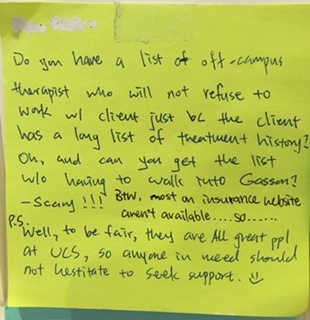 Do you have a list of off-campus
therapist who will not refuse to
work w/ client just bc the client
has a long list of treatment history?
Oh, and can you get the list
w/o having to walk into Gasson?
-Scary !!! Btw, most on insurance website
aren't available....so......
P.S.
Well, to be fair, they are All great ppl
at UCS, so anyone in need should
not hestitate to seek support. ☺